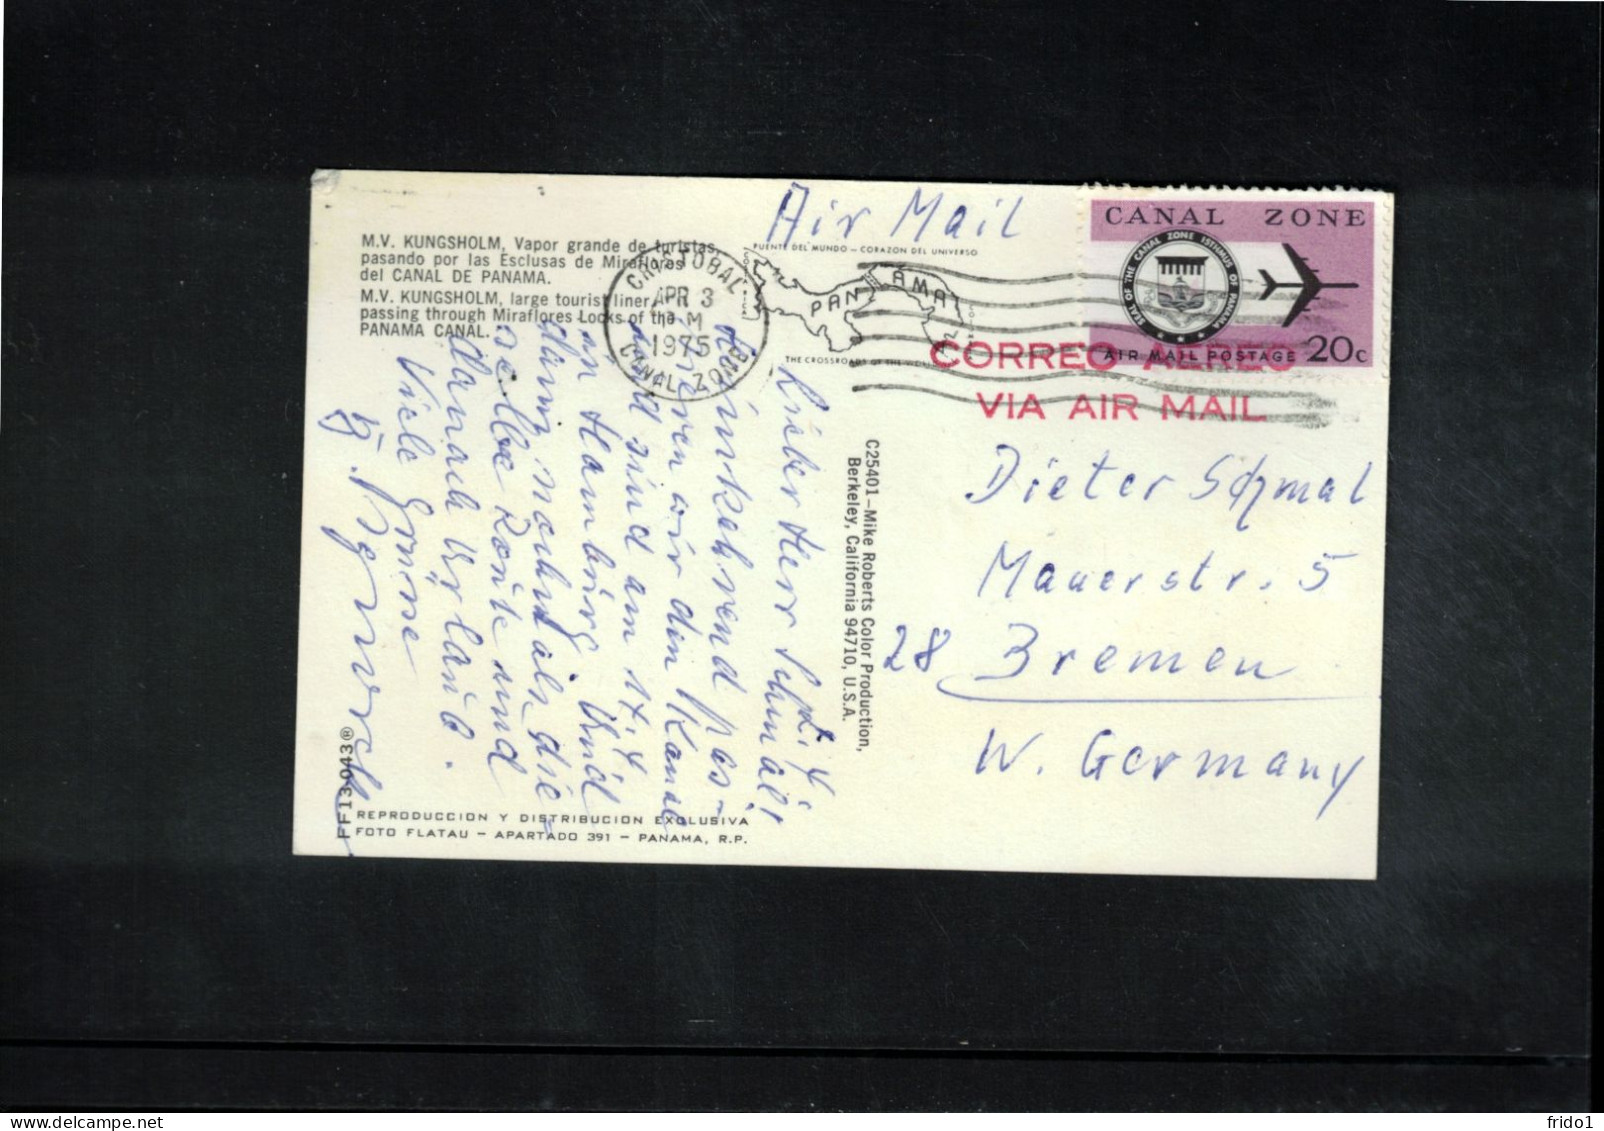 Air Mail
M.V. KUNGSHOLM, Vapor grande de turistas,
pasando por las Esclusas de Miraflores
del CANAL DE PANAMA.
M.V. KUNGSHOLM, large tourist liner,
passing through Miraflores Locks of the
PANAMA CANAL.
CRISTOBAL
APR 3
1975
CANAL ZONE
PUENTE DEL MUNDO – CORAZON DEL UNIVERSO
PANAMA
THE CROSSROADS OF THE
CANAL ZONE
SEAL OF THE CANAL ZONE ISTHMUS OF PANAMA
AIR MAIL POSTAGE 20c
CORREO AEREO
VIA AIR MAIL
2.4
Lieber Herr Schmal!
Heimkehrend pas-
sieren wir den Kanal
und sind am 17.4
in Hamburg. Und
dann nochmals die-
selbe Route und
danach Urlaub.
Viele Grüsse
C25401–Mike Roberts Color Production,
Berkeley, California 94710, U.S.A.
Dieter Schmal
Mauerstr. 5
28 Bremen
W. Germany
FF13043®
REPRODUCCION Y DISTRIBUCION EXCLUSIVA
FOTO FLATAU – APARTADO 391 – PANAMA, R.P.
frido1